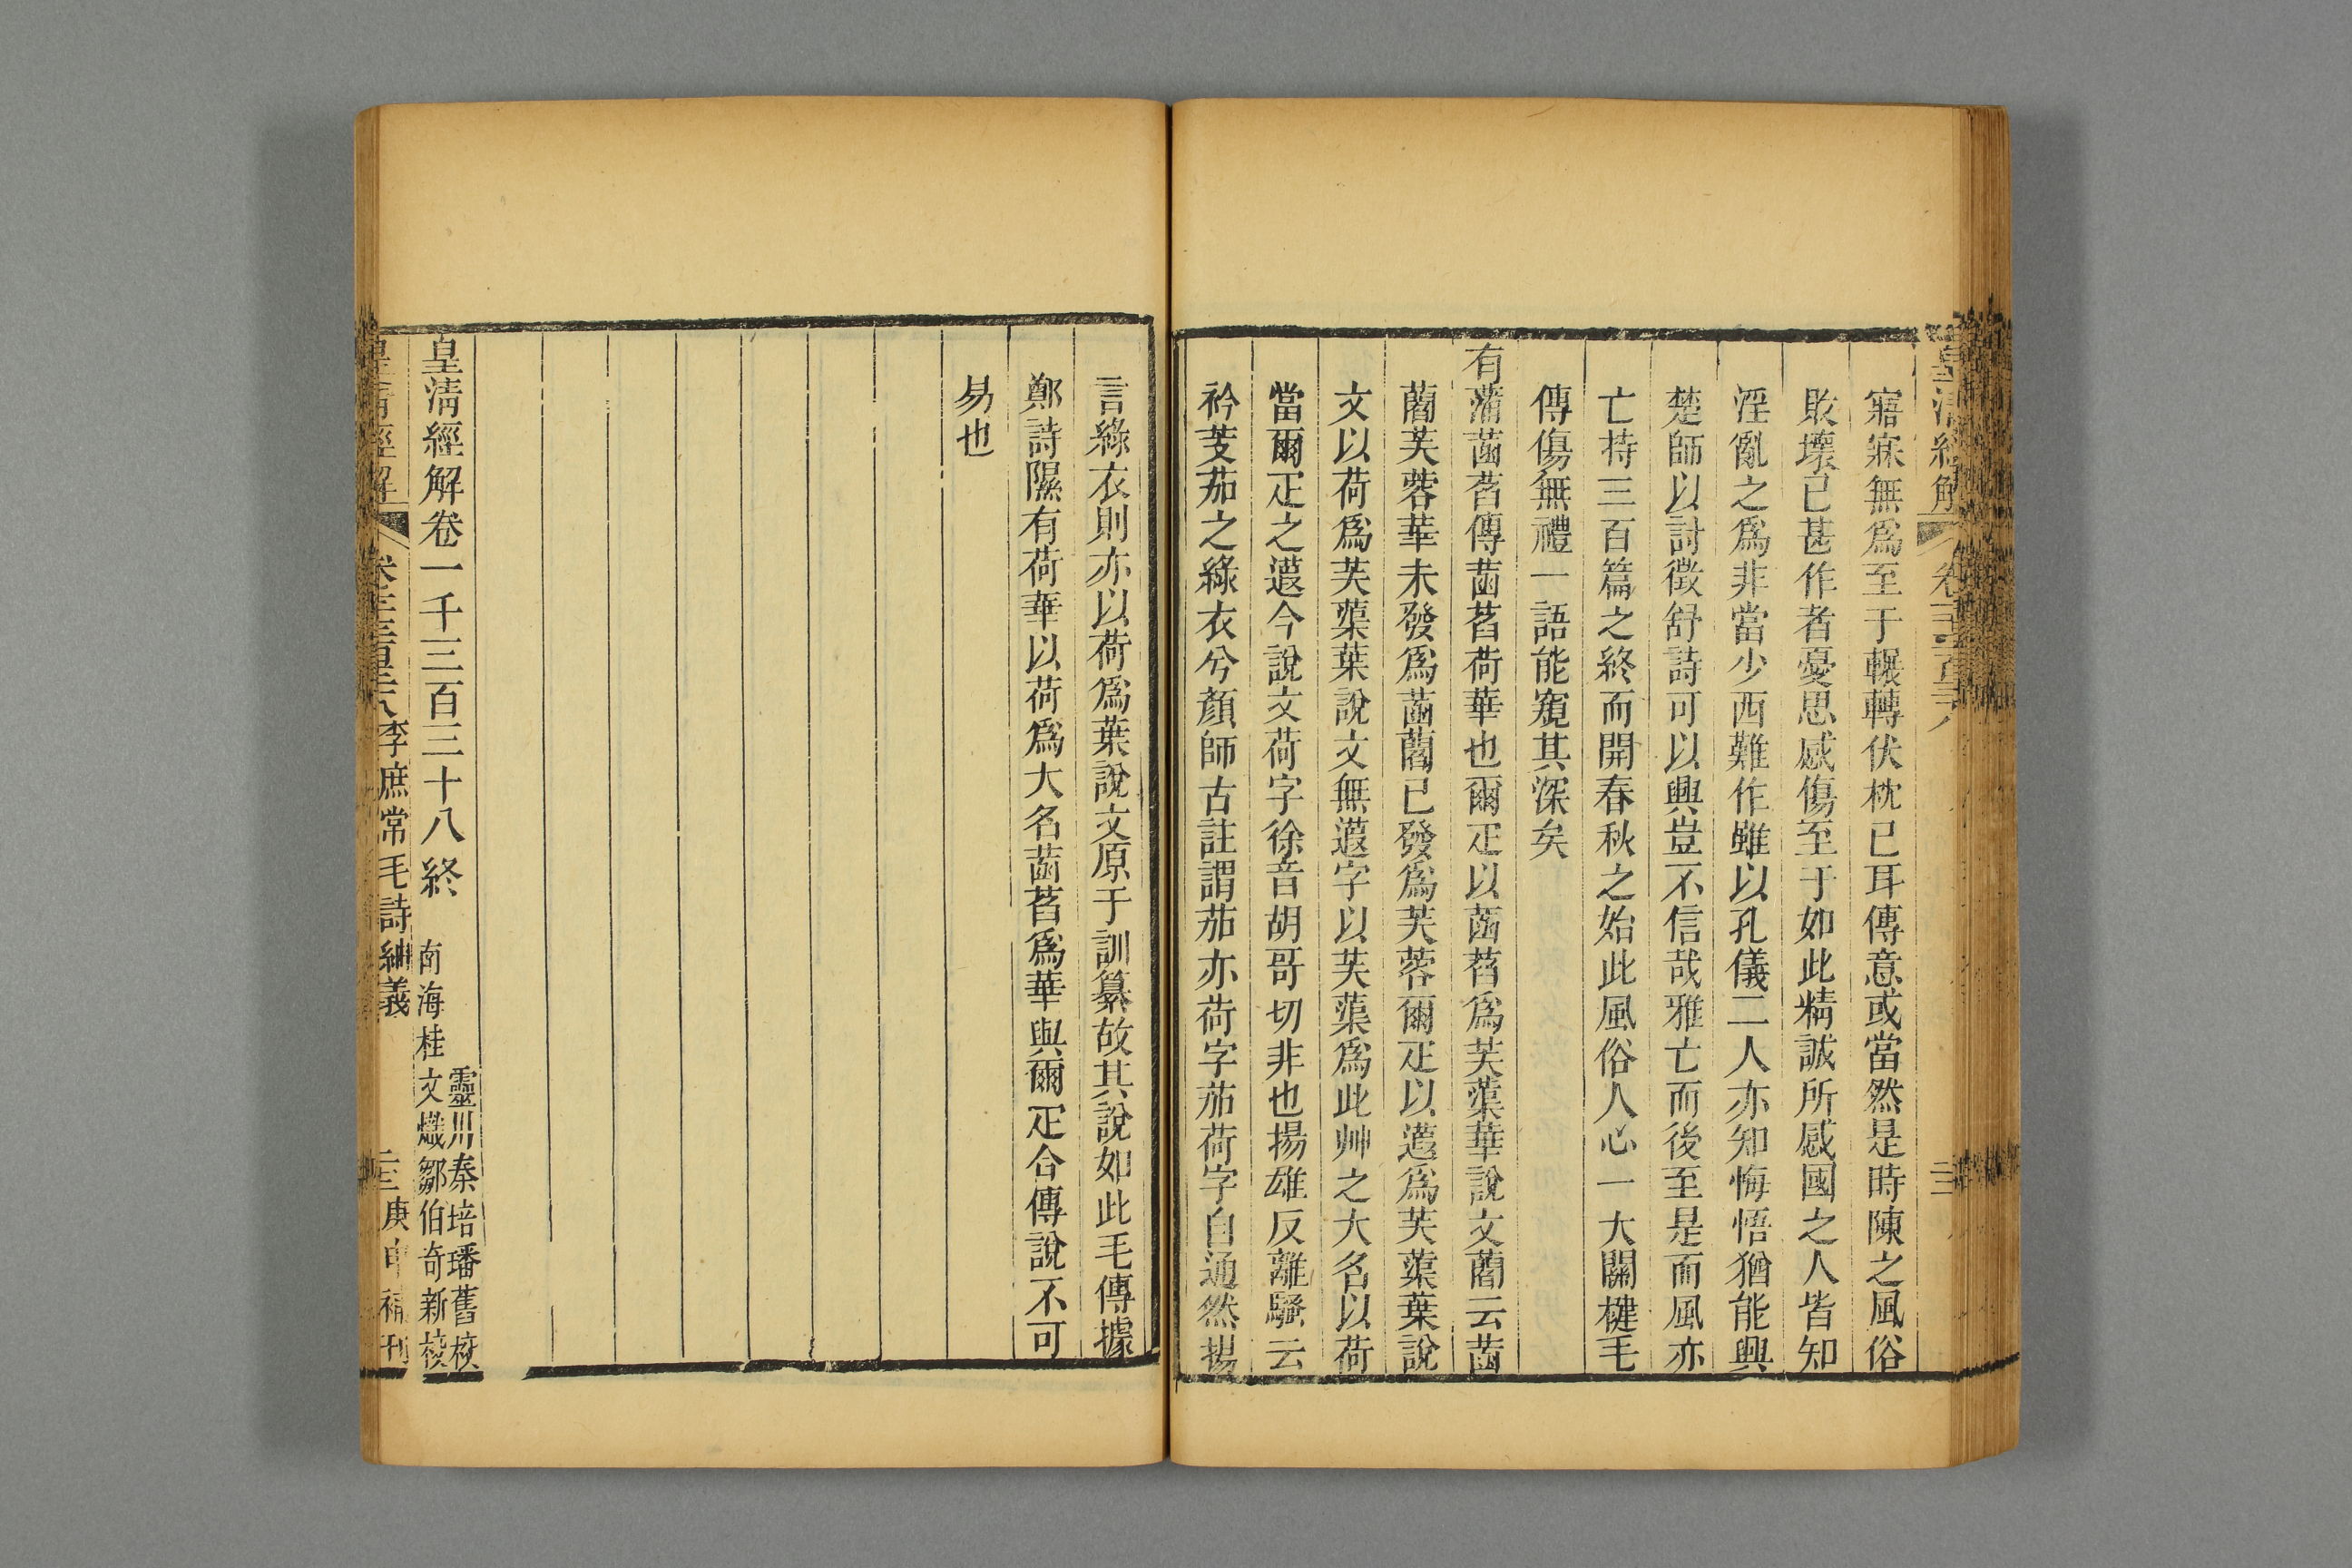 皇清經解
寤寐無爲至于輾轉伏枕已耳傳意或當然是時陳之風俗
敗壞已甚作者憂思感傷至于如此精誠所感國之人皆知
淫亂之爲非當少西難作雖以孔儀二人亦知悔悟猶能興
楚師以討徵舒詩可以興豈不信哉雅亡而後至是而風亦
亡持三百篇之終而開春秋之始此風俗人心一大關楗毛
傳傷無禮一語能窺其深矣
有蒲菡萏傳菡萏荷華也爾疋以菡萏爲芙蕖華說文藺云菡
藺芙蓉華未發爲菡藺已發爲芙蓉爾疋以蕸爲芙蕖葉說
文以荷爲芙蕖葉說文無蕸字以芙蕖爲此艸之大名以荷
當爾疋之蕸今說文荷字徐音胡哥切非也揚雄反離騷云
衿芰茄之綠衣兮顏師古註謂茄亦荷字茄荷字自通然揚
言綠衣則亦以荷爲葉說文原于訓纂故其說如此毛傳據
鄭詩隰有荷華以荷爲大名菡萏爲華與爾疋合傳說不可
易也
皇清經解卷一千三百三十八終
靈川秦培璠舊校
南海桂文熾鄒伯奇新校
皇清經解 李庶常毛詩紬義 庚申補刊